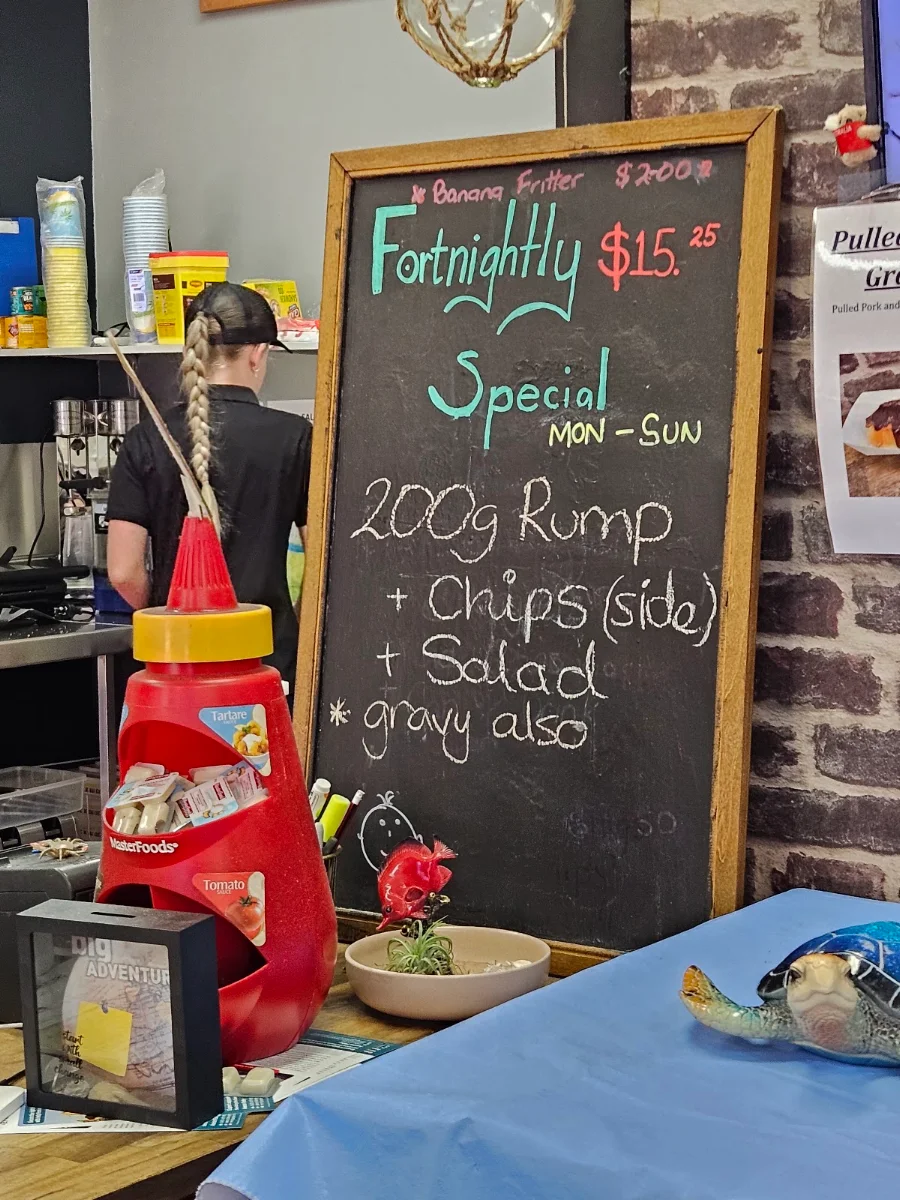 * Banana Fritter $2.00
Fortnightly $15.25
Special
MON - SUN
200g Rump
+ Chips (side)
+ Salad
* gravy also
Pulled
Gre
Pulled Pork and
Tartare
MasterFoods
Tomato
SAUCE
big
ADVENTUR
start
with
small
change